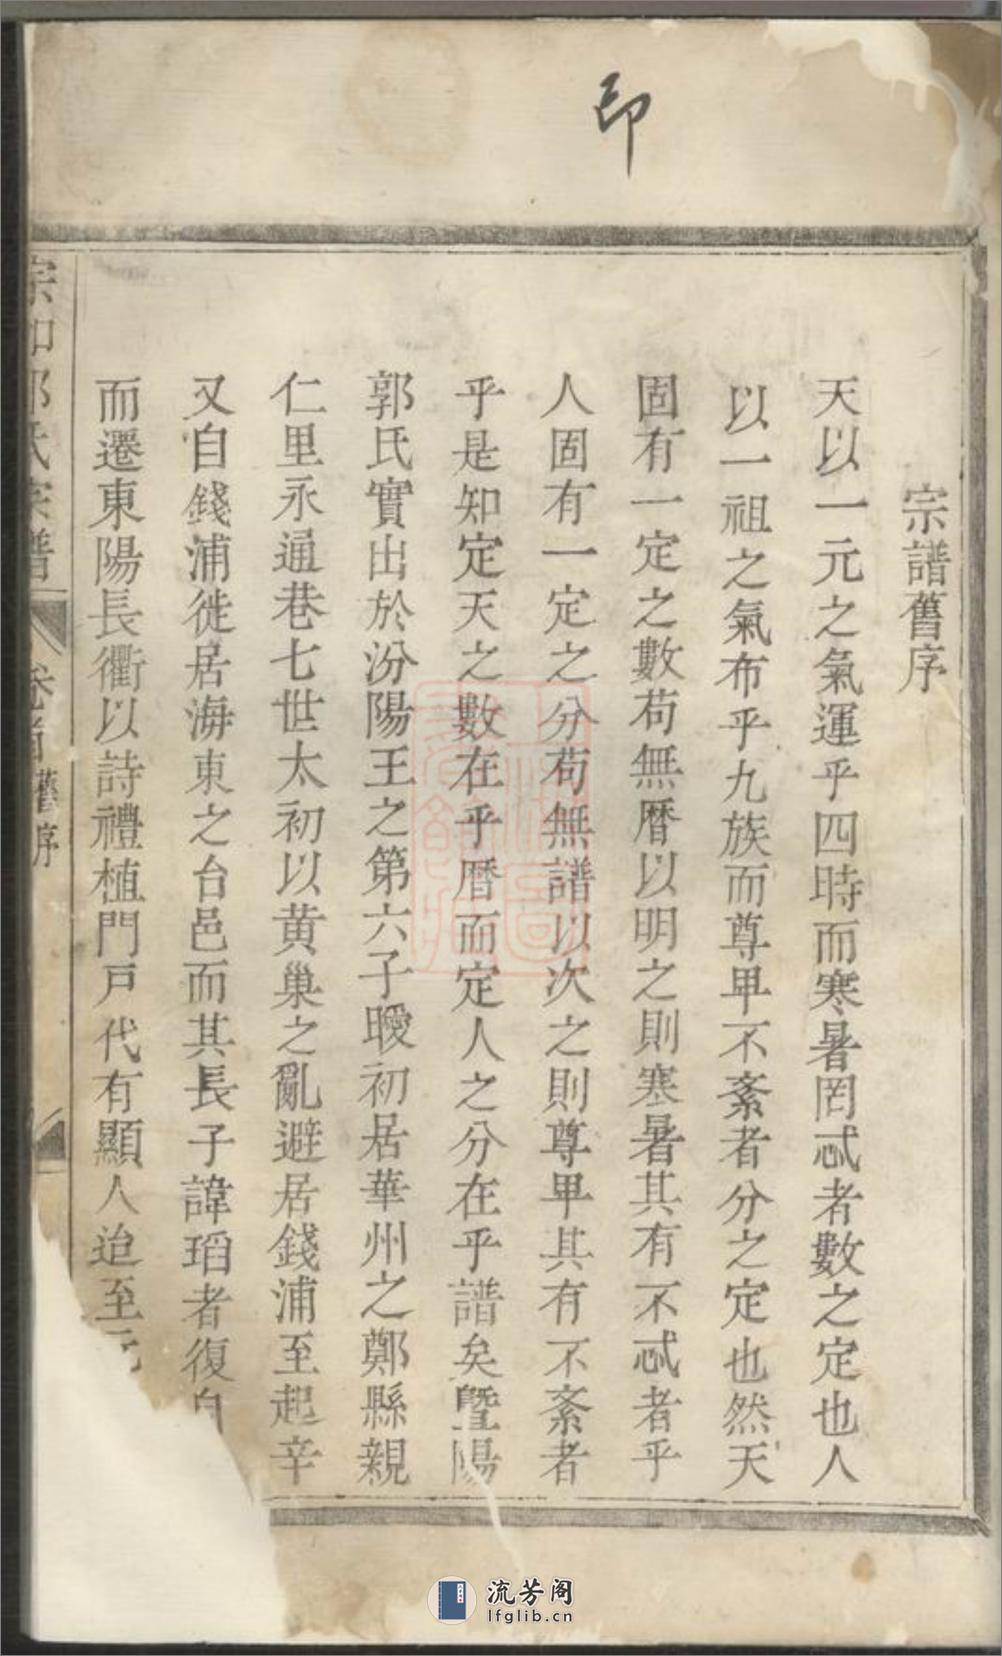 印
宗譜舊序
天以一元之氣運乎四時而寒暑罔忒者數之定也人
以一祖之氣布乎九族而尊卑不紊者分之定也然天
固有一定之數苟無曆以明之則寒暑其有不忒者乎
人固有一定之分苟無譜以次之則尊卑其有不紊者
乎是知定天之數在乎曆而定人之分在乎譜矣暨陽
郭氏實出於汾陽王之第六子曖初居華州之鄭縣親
仁里永通巷七世太初以黄巢之亂避居錢浦至起辛
又自錢浦徙居海東之台邑而其長子諱瑫者復自
而遷東陽長衢以詩禮植門戸代有顯人迨至元
宗和郭氏宗譜
卷首
舊序
流芳阁
lfglib.cn